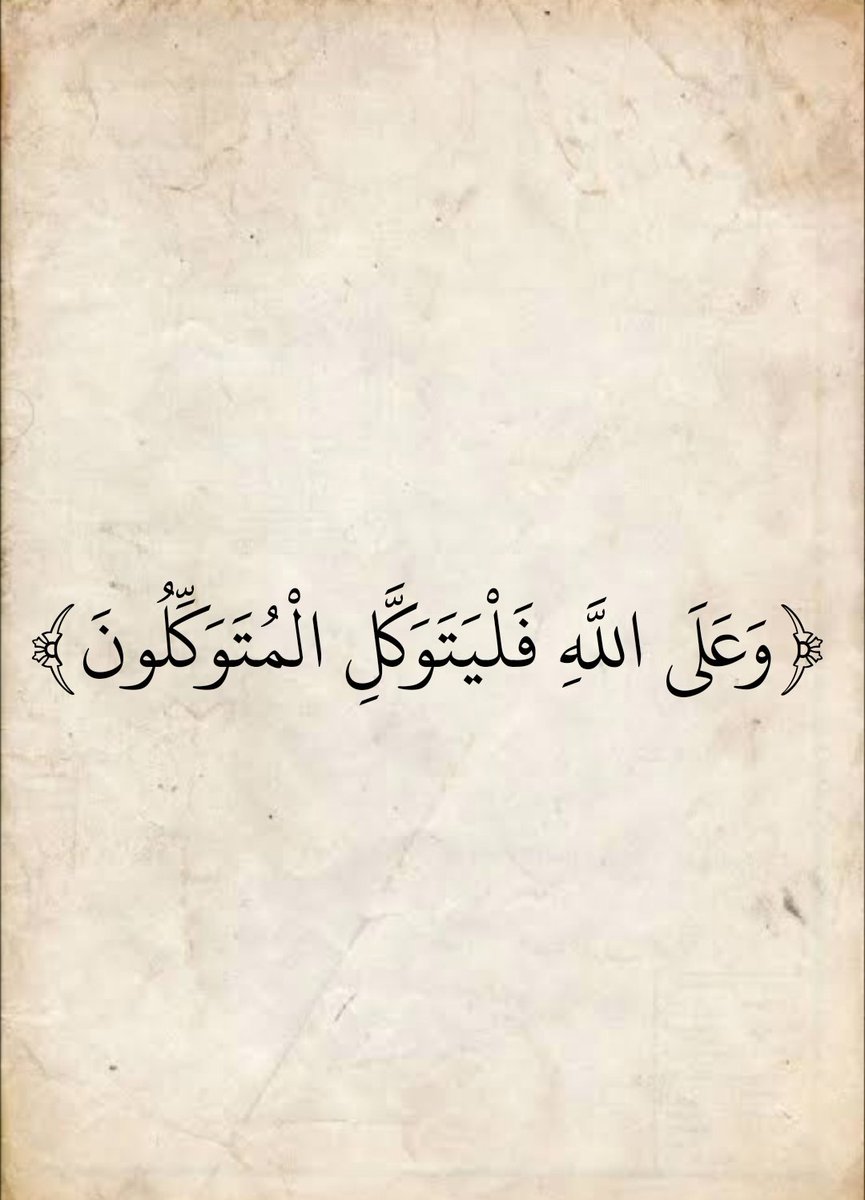 ﴿وَعَلَى اللَّهِ فَلْيَتَوَكَّلِ الْمُتَوَكِّلُونَ﴾